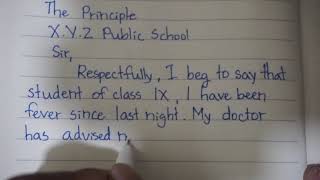 The Principle
X.Y.Z Public School
Sir,
Respectfully, I beg to say that
student of class IX, I have been
fever since last night. My doctor
has advised